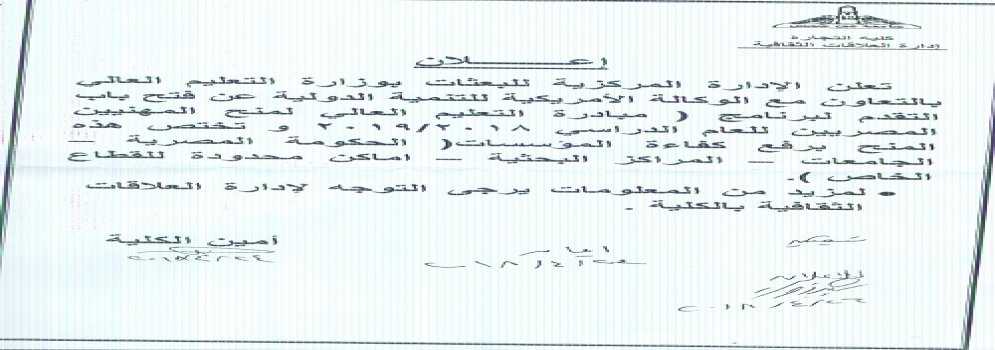 جامعة عين شمس
كلية التجارة
إدارة العلاقات الثقافية
إعـــــلان
تعلن الإدارة المركزية للبعثات بوزارة التعليم العالي
بالتعاون مع الوكالة الأمريكية للتنمية الدولية عن فتح باب
التقدم لبرنامج ( مبادرة التعليم العالي لمنح المهنيين
المصريين للعام الدراسي ٢٠١٩/٢٠١٨ و تختص هذه
المنح برفع كفاءة المؤسسات( الحكومة المصرية –
الجامعات – المراكز البحثية – اماكن محدودة للقطاع
الخاص ).
• لمزيد من المعلومات يرجى التوجه لإدارة العلاقات
الثقافية بالكلية .
أمين الكلية